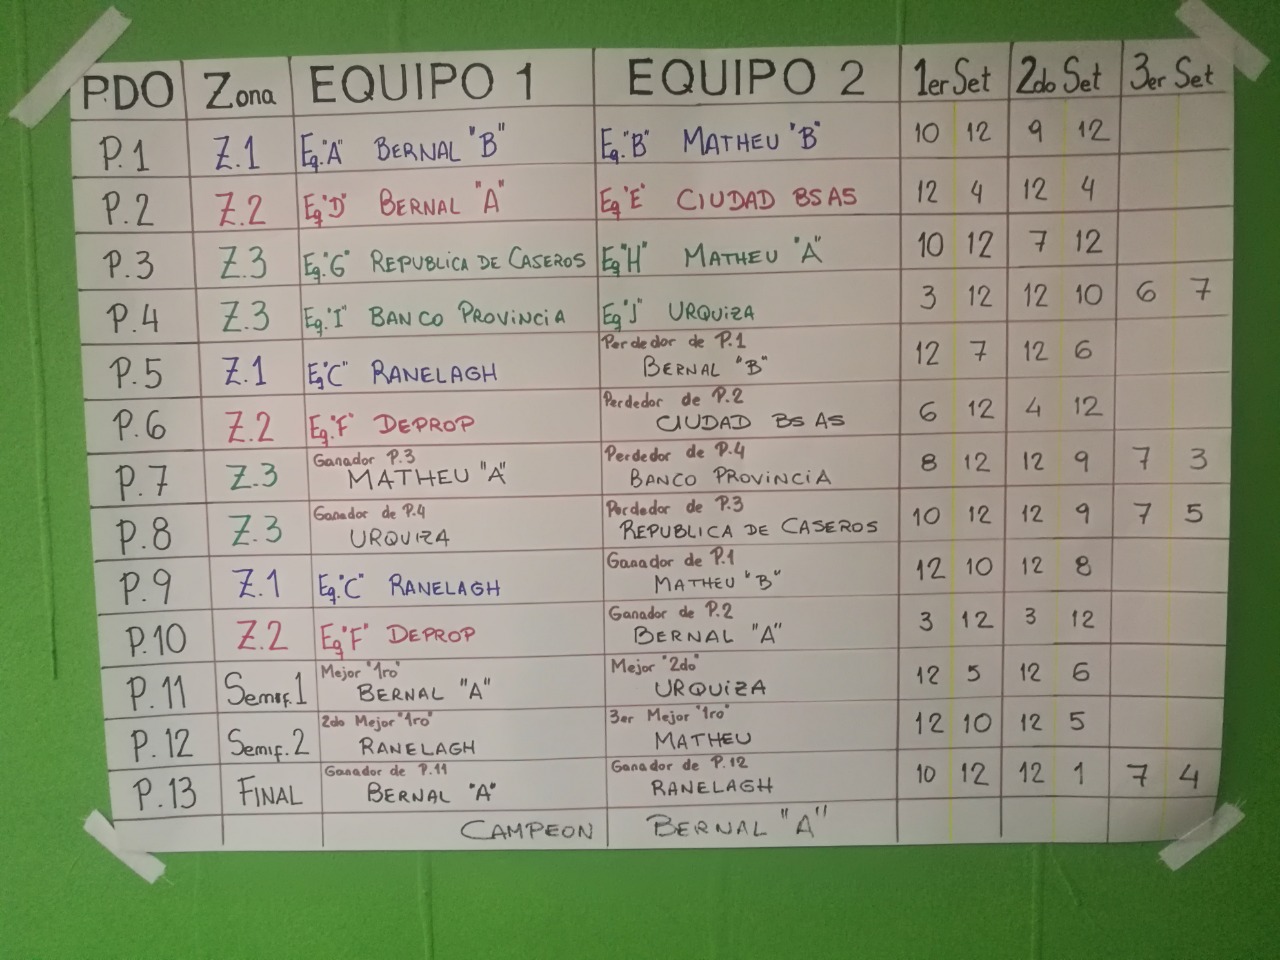 PDO Zona EQUIPO 1 EQUIPO 2 1er Set 2do Set 3er Set
P.1 Z.1 Eq."A" BERNAL "B" Eq."B" MATHEU "B" 10 12 9 12
P.2 Z.2 Eq"D" BERNAL "A" Eq"E" CIUDAD BS AS 12 4 12 4
P.3 Z.3 Eq."G" REPUBLICA DE CASEROS Eq"H" MATHEU "A" 10 12 7 12
P.4 Z.3 Eq."I" BANCO PROVINCIA Eq"J" URQUIZA 3 12 12 10 6 7
Perdedor de P.1
P.5 Z.1 Eq"C" RANELAGH BERNAL "B" 12 7 12 6
Perdedor de P.2
P.6 Z.2 Eq."F" DEPROP CIUDAD BS AS 6 12 4 12
Ganador P.3 Perdedor de P.4
P.7 Z.3 MATHEU "A" BANCO PROVINCIA 8 12 12 9 7 3
Ganador de P.4 Perdedor de P.3
P.8 Z.3 URQUIZA REPUBLICA DE CASEROS 10 12 12 9 7 5
Ganador de P.1
P.9 Z.1 Eq."C" RANELAGH MATHEU "B" 12 10 12 8
Ganador de P.2
P.10 Z.2 Eq"F" DEPROP BERNAL "A" 3 12 3 12
Mejor "1ro" Mejor "2do"
P.11 Semif.1 BERNAL "A" URQUIZA 12 5 12 6
2do Mejor "1ro" 3er Mejor "1ro"
P.12 Semif.2 RANELAGH MATHEU 12 10 12 5
Ganador de P.11 Ganador de P.12
P.13 FINAL BERNAL "A" RANELAGH 10 12 12 1 7 4
CAMPEON BERNAL "A"